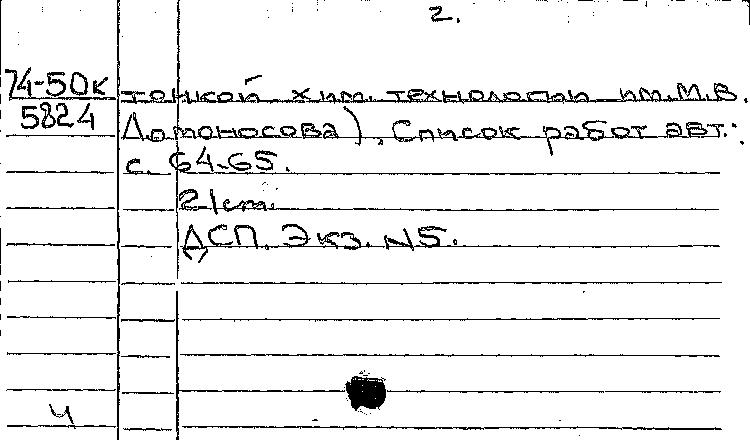 2.
74-50к тонкой хим. технологии им. М.В.
5824 Ломоносова). Список работ авт.:
с. 64-65.
21cm.
ДСП. Экз. N5.
ч